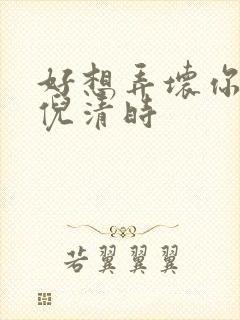 好想弄坏你
倪清时
若翼翼翼